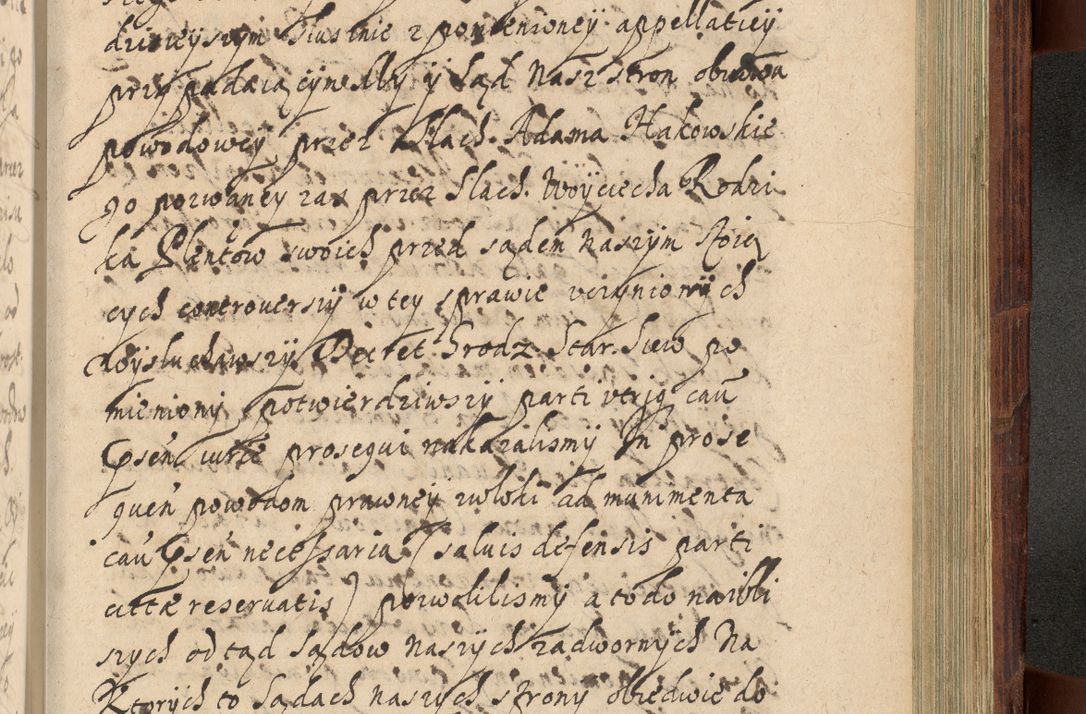 dzisieyszym słusznie z pomienioney appellatiey
przypadaiącym Były y Sąd Nasz stron obudwu
powodowey przez Slach. Adama Hakowskie
go pozwaney zas przez Slach. Woÿciecha Rodzi
ka Plentow swoich przed sądem Naszÿm stoią
cych controuersiÿ w tey sprawie vczynionÿch
wÿsłuchawszÿ Decret Grodz. Star. Siew. po
mieniony potwierdziwszy parti vtriq cau
Psen iurae prosequi nakazalismÿ In prose
quen powodom prawney zwłoki ad munimenta
cau Psen necessaria (saluis defensis parti
cittae reseruatis) pozwolilismÿ a to do naibli
szych od tąd Sądow Naszÿch zadwornÿch Na
Ktorych to Sądach naszych strony obiedwie do